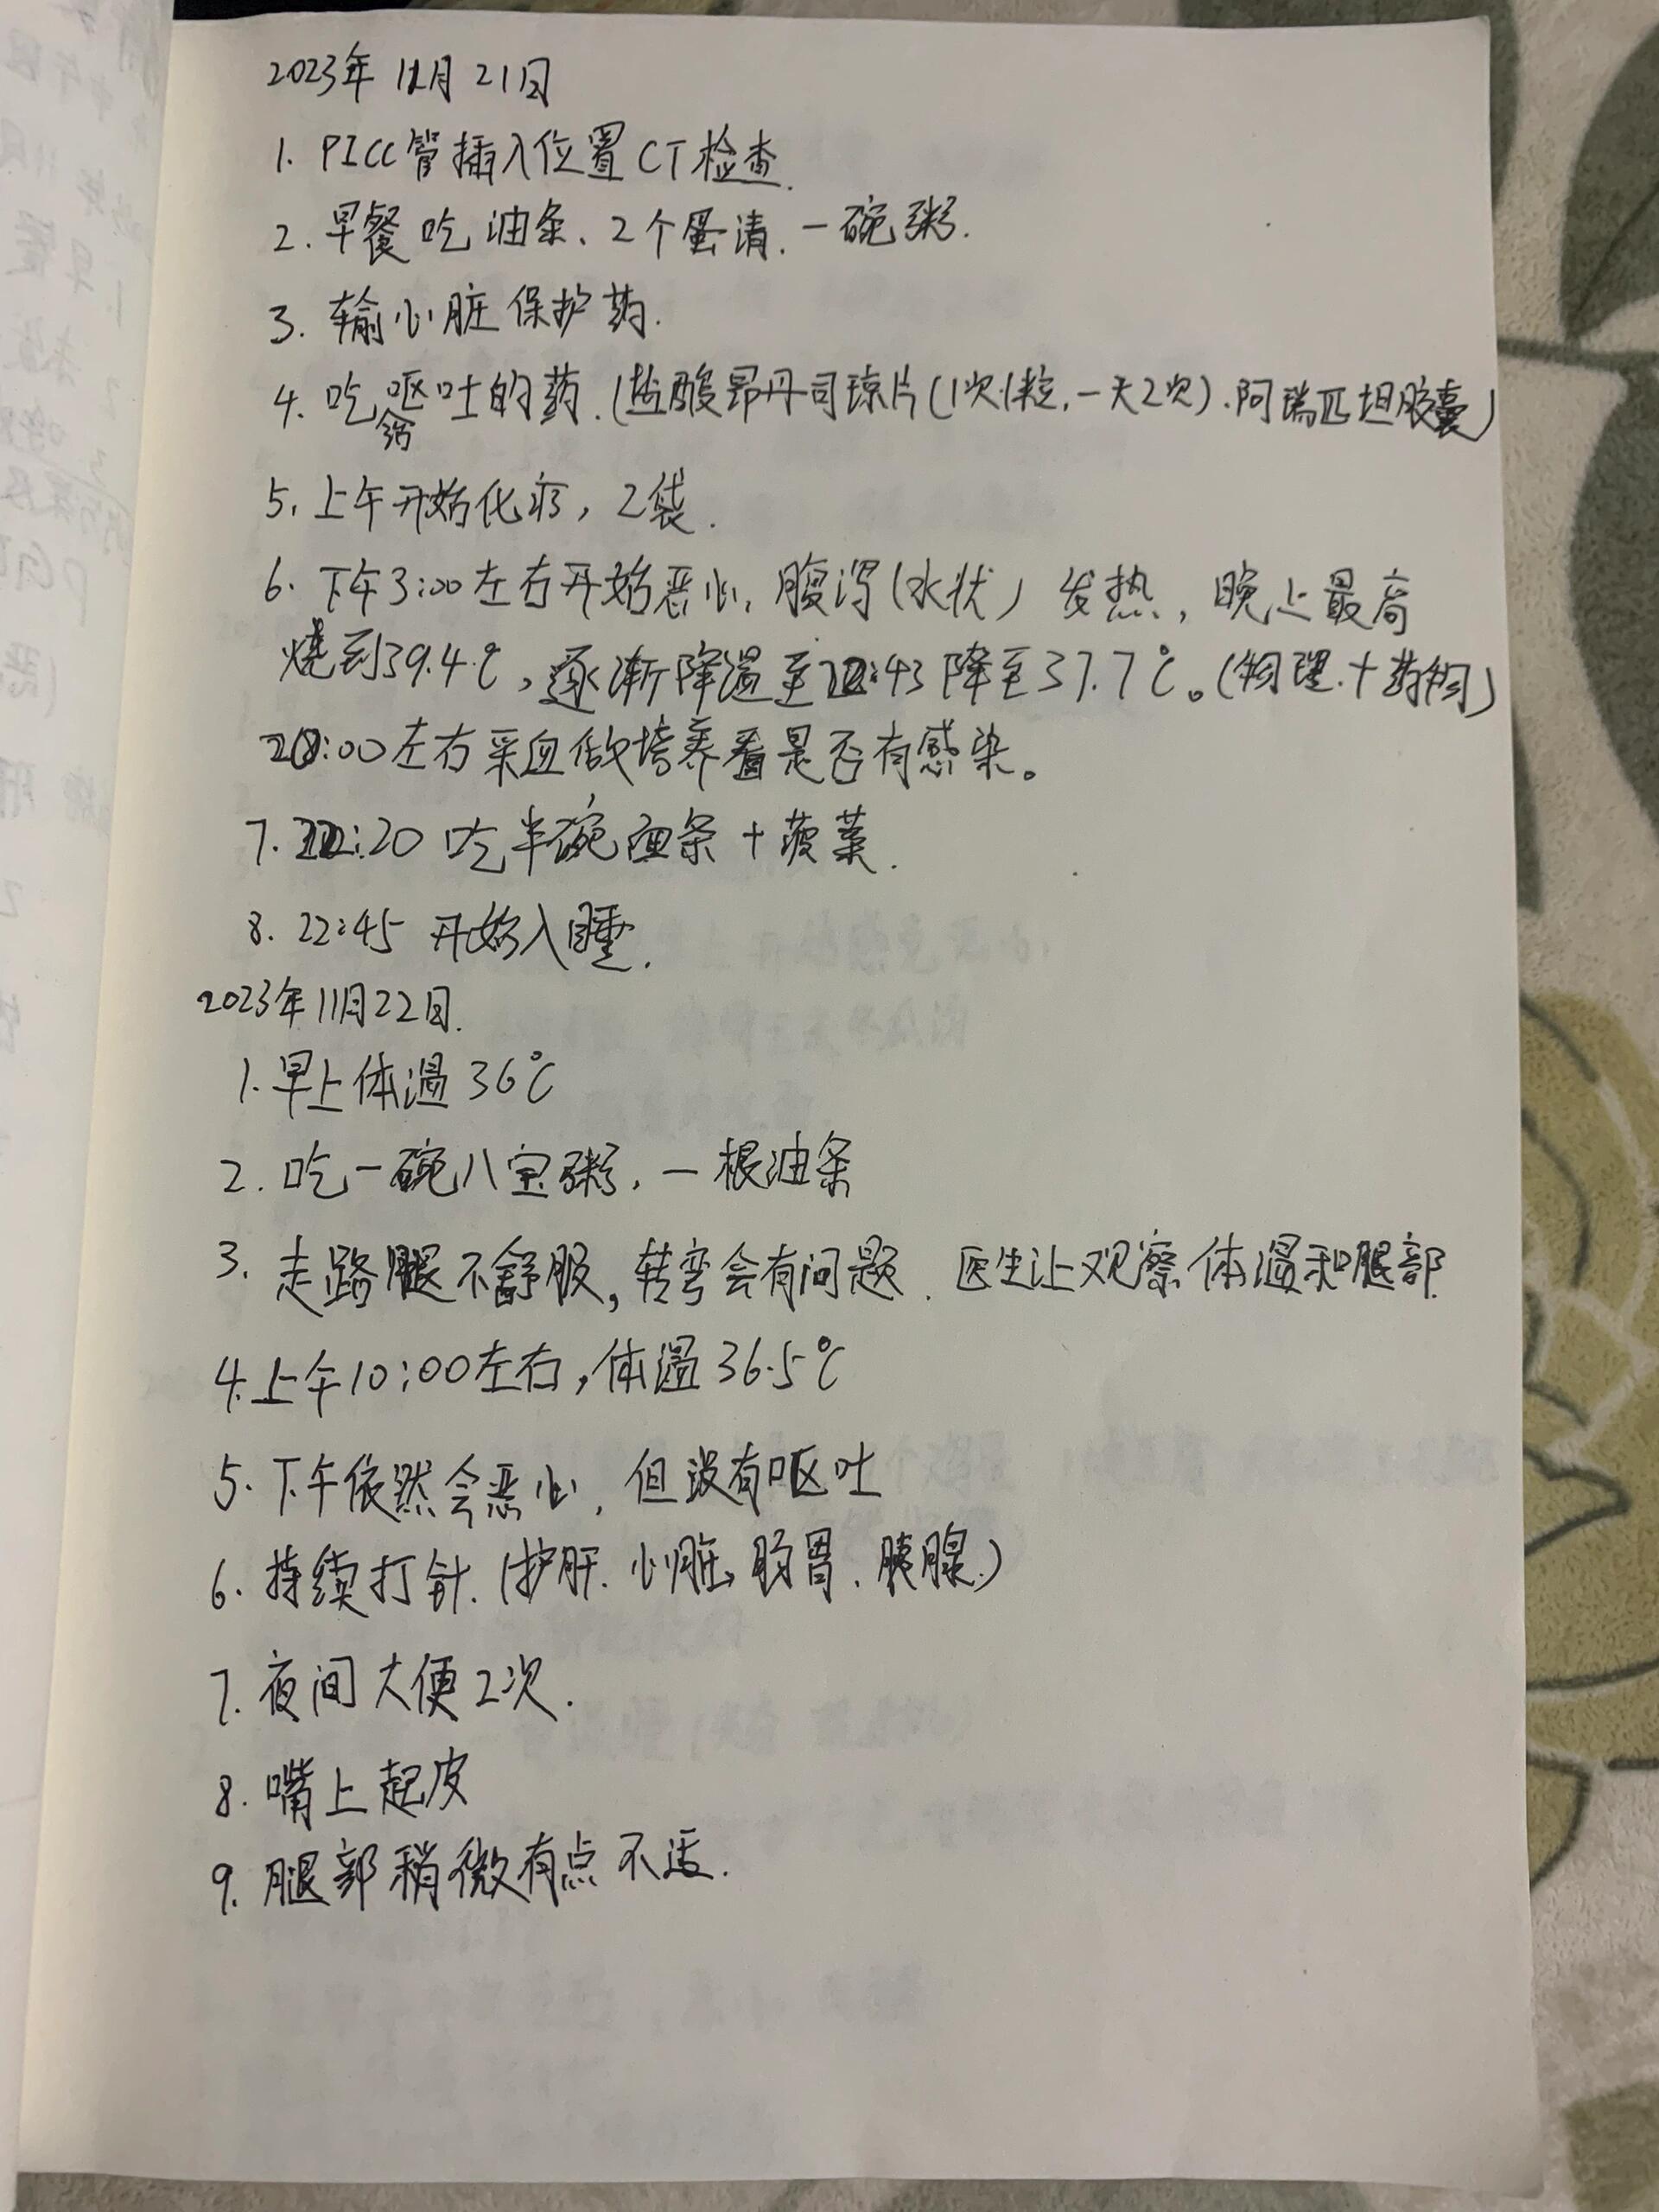 2023年11月21日
1. PICC管插入位置CT检查.
2. 早餐吃油条、2个蛋清、一碗粥.
3. 输心脏保护药.
4. 吃呕吐的药.(盐酸昂丹司琼片(1次1粒,一天2次).阿瑞匹坦胶囊)
5. 上午开始化疗, 2袋.
6. 下午3:00左右开始恶心, 腹泻(水状) 发热, 晚上最高
烧到39.4℃,逐渐降温至22:43降至37.7℃。(物理+药物)
20:00左右采血做培养看是否有感染。
7. 22:20 吃半碗面条+菠菜.
8. 22:45 开始入睡.
2023年11月22日.
1. 早上体温36℃
2. 吃一碗八宝粥, 一根油条
3. 走路腿不舒服,转弯会有问题. 医生让观察体温和腿部.
4. 上午10:00左右,体温36.5℃
5. 下午依然会恶心, 但没有呕吐
6. 持续打针.(护肝.心脏、肠胃、胰腺.)
7. 夜间大便2次.
8. 嘴上起皮
9. 腿部稍微有点不适.